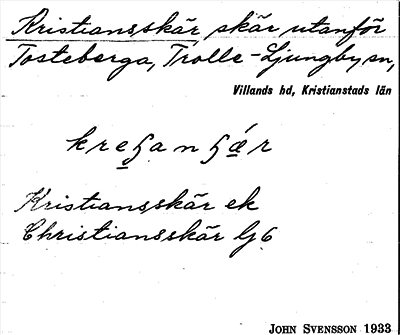 Kristiansskär, skär utanför
Tosteberga, Trolle-Ljungby sn,
Villands hd, Kristianstads län
Kristiansskär ek
Christiansskär
JOHN SVENSSON 1933